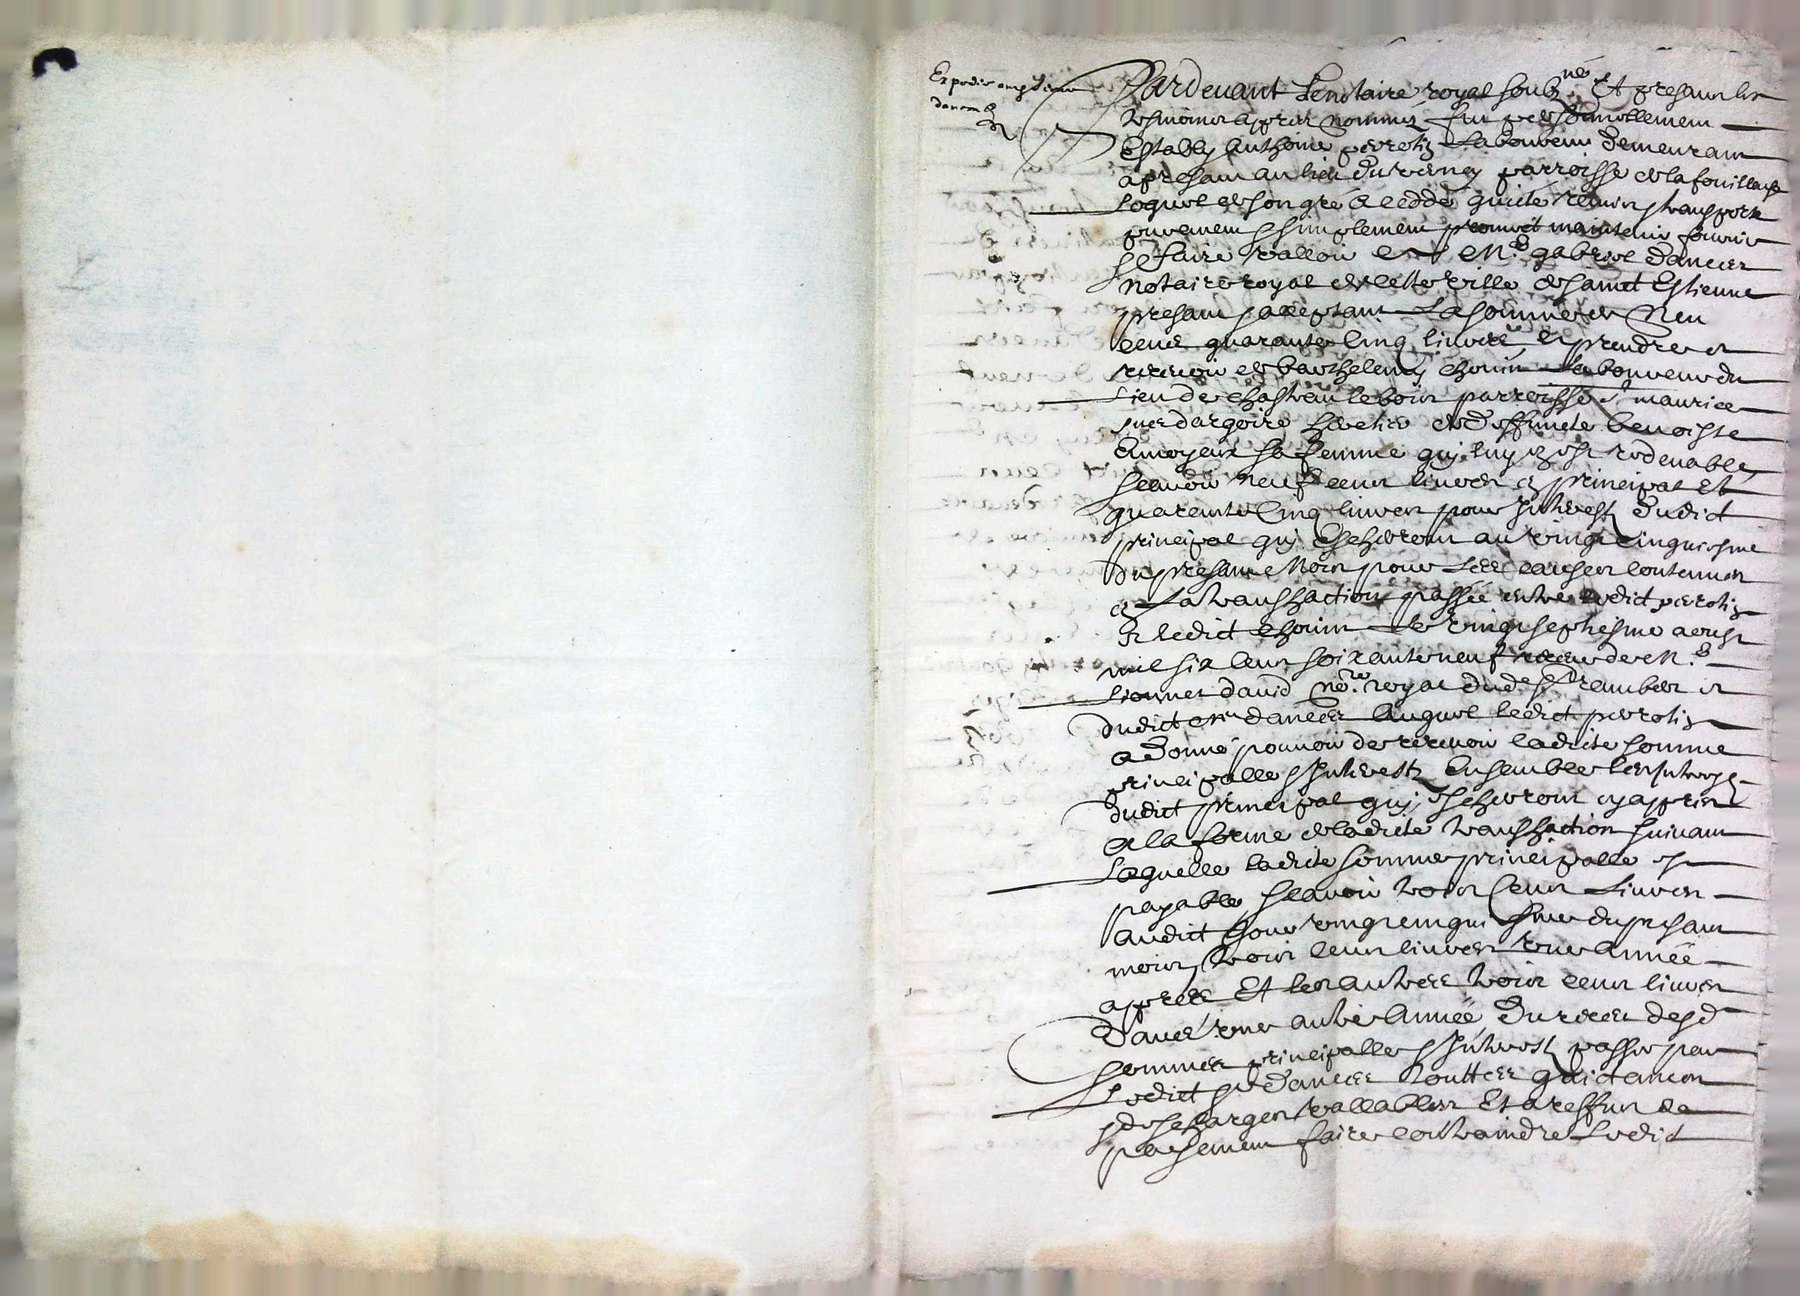 Pardevant Le notaire royal soubz.né Et presans les
tesmoins appres nommés fut personnellement
Estably Anthoine perrotin Laboureur demeurant
a presant au lieu du verney parroisse de la fouillouse
Lequel de son gré a ceddé quicté remis transporté
purement & simplement promet maintenir fournir
& faire valloir a Me gabriel dancer
notaire royal de cette ville de sainct Estienne
presant & acceptant La somme de neu
cens quarante Cinq livres a prendre et
recevoir de barthelemy chovin Laboureur du
Lieu de chasteau le bois parroisse St maurice
sur dargoire de deffuncte benoiste
sa femme qui luy est redevable
scavoir neuf cens livres en principal Et
quarante Cinq livres pour Interest dudict
principal qui Escherront au vingt cinquiesme
du presant Mois pour Les causes contenues
en La transaction passée entre ledict perrotin
Et ledict chovin Le vingt septiesme
mil six cens soixante neuf receue de Me
Lionnet david nore royal dud St rambert et
dudict dancer Auquel ledict perrotin
a donné pouvoir de recevoir ladicte somme
principalle & Interestz Ensemble les Interestz
dudict principal qui Escherront cy appres
a la forme de ladicte transaction suivant
Laquelle ladicte somme principalle est
payable scavoir trois Cens Livres
audict Jour vingt cinquiesme du presant
mois, trois cens livres une année
appres Et les autres trois cens livres
dans une autre Année du receu desd
sommes principalles & Interestz passer par
Ledict sr dancer touttes quictances
& descharges vallables Et a reffus de
payement faire contraindre Ledict